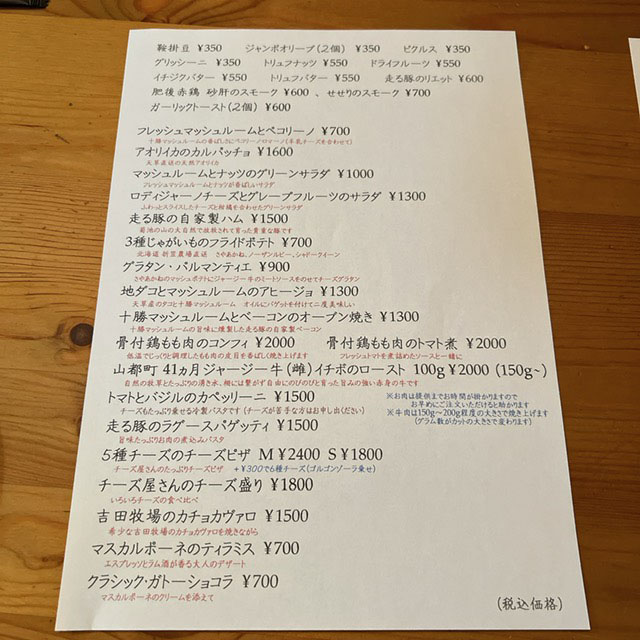 鞍掛豆 ¥350 ジャンボオリーブ(2個) ¥350 ピクルス ¥350
グリッシーニ ¥350 トリュフナッツ ¥550 ドライフルーツ ¥550
イチジクバター ¥550 トリュフバター ¥550 走る豚のリエット ¥600
肥後赤鶏 砂肝のスモーク ¥600 、せせりのスモーク ¥700
ガーリックトースト(2個) ¥600
フレッシュマッシュルームとペコリーノ ¥700
十勝マッシュルームの香ばしさにペコリーノロマーノ(羊乳チーズを合わせて)
アオリイカのカルパッチョ ¥1600
天草直送の天然アオリイカ
マッシュルームとナッツのグリーンサラダ ¥1000
フレッシュマッシュルームとナッツが香ばしいサラダ
ロディジャーノチーズとグレープフルーツのサラダ ¥1300
ふわっとスライスしたチーズと柑橘を合わせたグリーンサラダ
走る豚の自家製ハム ¥1500
菊池の山の大自然で放牧されて育った貴重な豚です
3種じゃがいものフライドポテト ¥700
北海道 折笠農場直送 さやあかね、ノーザンルビー、シャドークイーン
グラタン・パルマンティエ ¥900
さやあかねのマッシュポテトにジャージー牛のミートソースをのせてチーズグラタン
地ダコとマッシュルームのアヒージョ ¥1300
天草産のタコと十勝マッシュルーム オイルにバゲットを付けて二度美味しい
十勝マッシュルームとベーコンのオーブン焼き ¥1300
十勝マッシュルームの旨味に燻製した走る豚の自家製ベーコン
骨付鶏もも肉のコンフィ ¥2000 骨付鶏もも肉のトマト煮 ¥2000
低温でじっくりと調理したもも肉の皮目を香ばしく焼き上げます フレッシュトマトを煮詰めたソースと一緒に
山都町 41ヵ月ジャージー牛(雌)イチボのロースト 100g ¥2000 (150g~)
自然の牧草とたっぷりの湧き水、柵には繋がず自由にのびのびと育った旨みの強い赤身の牛です
トマトとバジルのカペッリーニ ¥1500 ※お肉は提供までお時間が掛かりますので
チーズもたっぷり乗せる冷製パスタです (チーズが苦手な方はお申し出ください) お早めにご注文いただけると助かります
走る豚のラグースパゲッティ ¥1500 ※牛肉は150g~200g程度の大きさで焼き上げます
旨味たっぷりお肉の煮込みパスタ (グラム数がカットの大きさで変わります)
5種チーズのチーズピザ M ¥2400 S ¥1800
チーズ屋さんのたっぷりチーズピザ +¥300で6種チーズ(ゴルゴンゾーラ乗せ)
チーズ屋さんのチーズ盛り ¥1800
いろいろチーズの食べ比べ
吉田牧場のカチョカヴァロ ¥1500
希少な吉田牧場のカチョカヴァロを焼きながら
マスカルポーネのティラミス ¥700
エスプレッソとラム酒が香る大人のデザート
クラシック・ガトーショコラ ¥700
マスカルポーネのクリームを添えて
(税込価格)